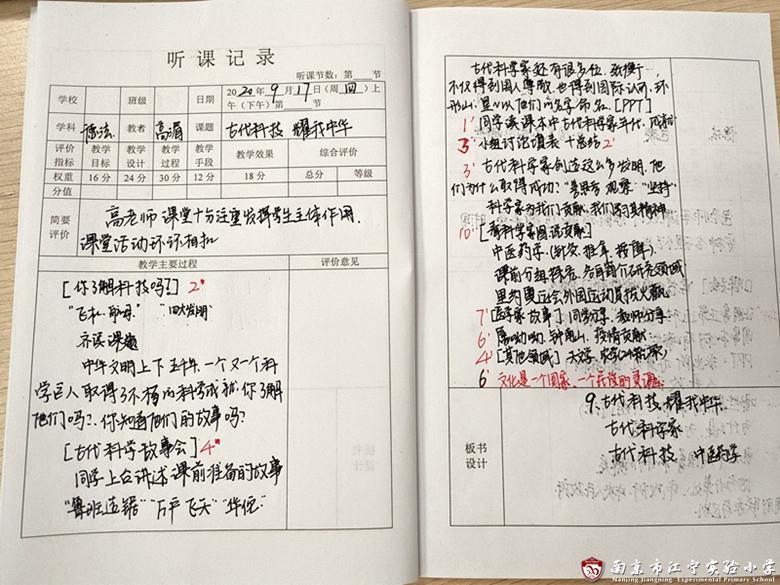 听课记录
听课节数：第 节
学校 班级 日期 2020年9月17日（周四）上
午（下午）第 节
学科 德法 教者 高湄 课题 古代科技 耀我中华
评价指标 教学目标 教学设计 教学过程 教学手段 教学效果 综合评价
权重 16分 24分 30分 12分 18分 总分 等级
分值
简要评价 高老师课堂十分注重发挥学生主体作用，
课堂活动环环相扣
教学主要过程 评价意见
[你了解科技吗?] 2'
"飞机、 " "四大发明"
齐读课题
中华文明上下五千年，一个又一个科
学巨人取得了不朽的科学成就，你了解
他们吗?、你知道他们的故事吗?
[古代科学故事会] 4'
同学上台讲述课前准备的故事
"鲁班造锯" "万户飞天" "华佗"
古代科学家还有很多位，张衡
不仅得到国人尊敬，也得到国际认可，环
形山、星以他们的名字命名。[PPT]
1' 同学读课本中古代科学家年代、成就
3' 小组讨论填表 十总结 2'
3' 古代科学家创造这么多发明，他
们为什么取得成功? "善思考 观察" "坚持"
科学家为我们贡献，我们学习其精神
10' [ 科学家 说贡献]
中医药学（针灸、推拿、按摩）
课前分组探究，各自简介研究领域
里约奥运会外国运动员拔火罐
7' [医学家故事] 同学分享，教师分享
6' 屠呦呦、钟南山，疫情贡献
4' [其他领域] 天文学、农学
6' 文化是一个国家、一个民族的灵魂。
板书设计 9、古代科技 耀我中华
古代科学家
古代科技 中医药学
南京市江宁实验小学
Nanjing Jiangning Experimental Primary School